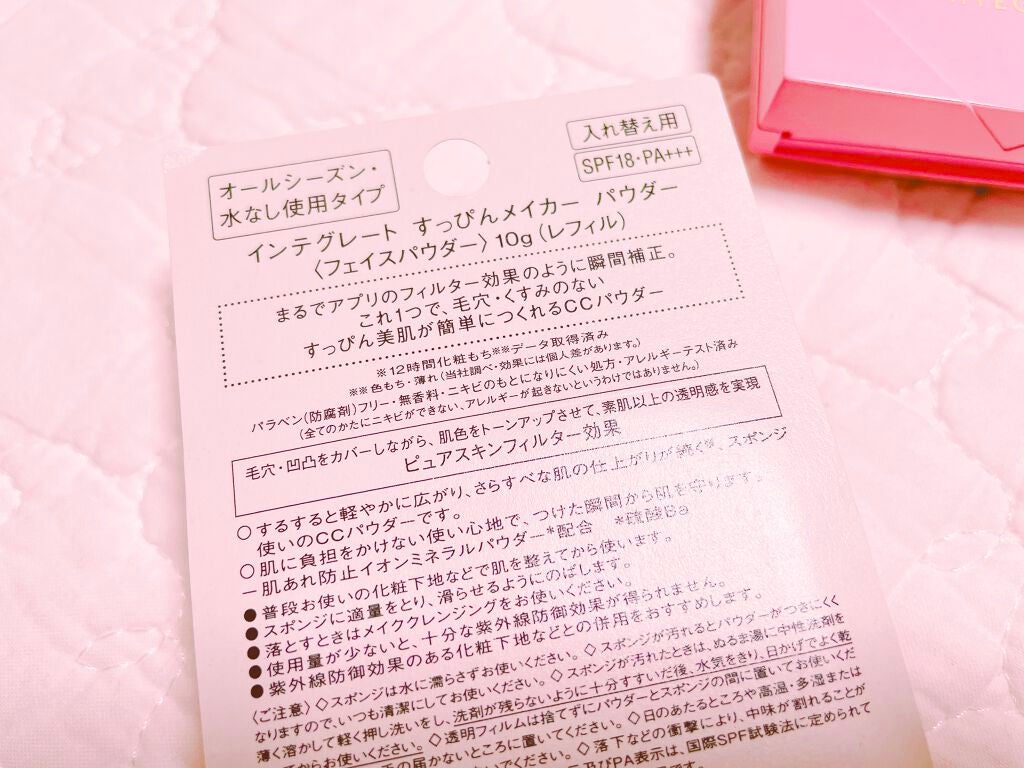 オールシーズン・
水なし使用タイプ
入れ替え用
SPF18・PA+++
インテグレート すっぴんメイカー パウダー
〈フェイスパウダー〉10g(レフィル)
まるでアプリのフィルター効果のように瞬間補正。
これ1つで、毛穴・くすみのない
すっぴん美肌が簡単につくれるCCパウダー
※12時間化粧もち※※データ取得済み
※※色もち・薄れ(当社調べ・効果には個人差があります。)
パラベン(防腐剤)フリー・無香料・ニキビのもとになりにくい処方・アレルギーテスト済み
(全てのかたにニキビができない、アレルギーが起きないというわけではありません。)
毛穴・凹凸をカバーしながら、肌色をトーンアップさせて、素肌以上の透明感を実現
ピュアスキンフィルター効果
○するすると軽やかに広がり、さらすべな肌の仕上がりが続く※、スポンジ
使いのCCパウダーです。
○肌に負担をかけない使い心地で、つけた瞬間から肌を守ります。
ー肌あれ防止イオンミネラルパウダー*配合 *硫酸Ba
●普段お使いの化粧下地などで肌を整えてから使います。
●スポンジに適量をとり、滑らせるようにのばします。
●落とすときはメイククレンジングをお使いください。
●使用量が少ないと、十分な紫外線防御効果が得られません。
●紫外線防御効果のある化粧下地などとの併用をおすすめします。
〈ご注意〉◇スポンジは水に濡らさずお使いください。◇スポンジが汚れるとパウダーがつきにくく
なりますので、いつも清潔にしてお使いください。◇スポンジが汚れたときは、ぬるま湯に中性洗剤を
薄く溶かして軽く押し洗いをし、洗剤が残らないように十分すすいだ後、水気をきり、日かげでよく乾
かしてからお使いください。◇透明フィルムは捨てずにパウダーとスポンジの間に置いてお使いくだ
の届かないところに置いてください。◇日のあたるところや高温・多湿または
ないでください。◇落下などの衝撃により、中味が割れることが
及びPA表示は、国際SPF試験法に定められて
です。